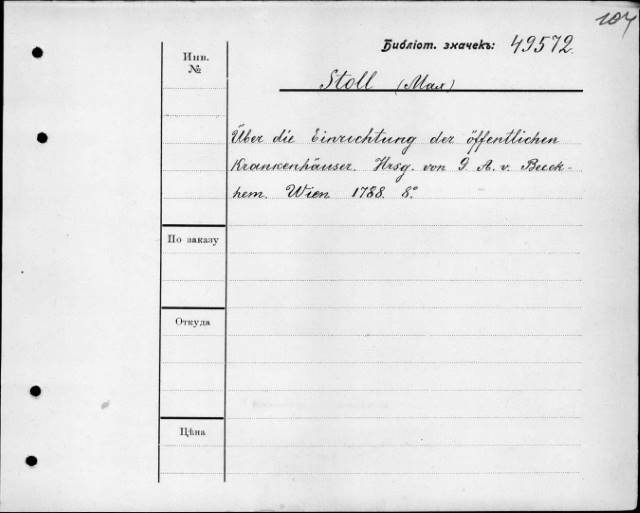 104
Библіот. значекъ: 49572.
Инв.
№
Stoll (Max)
Über die Einrichtung der öffentlichen
Krankenhäuser. Hrsg. von G. A. v. Beeck-
hem. Wien 1788. 8°.
По заказу
Откуда
Цѣна